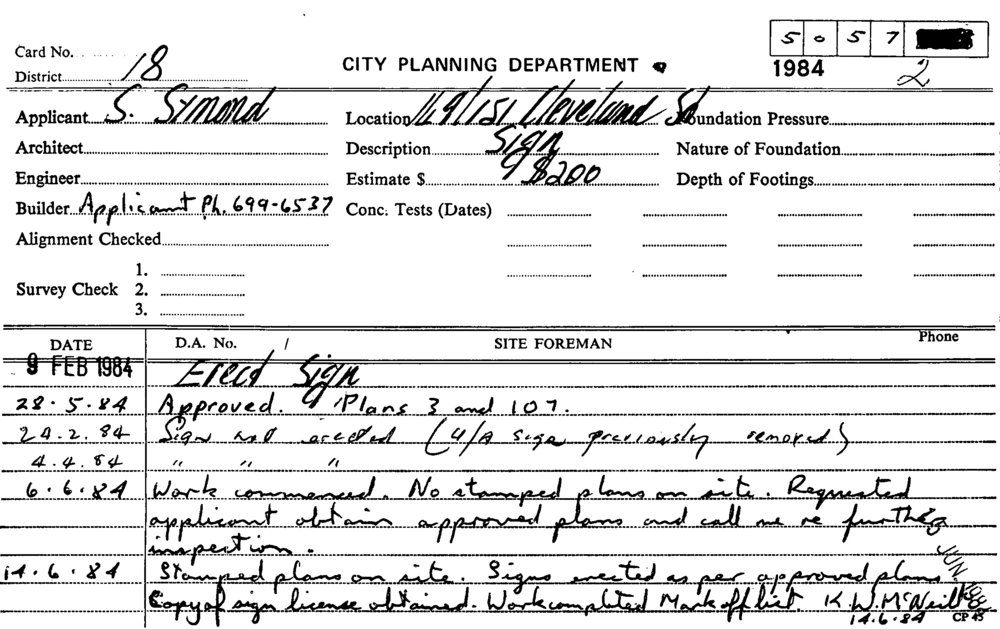 5 0 5 7
Card No.
District 18
CITY PLANNING DEPARTMENT
1984 2
Applicant S. Symond
Location 149/151 Cleveland St
Foundation Pressure
Architect
Description Sign
Nature of Foundation
Engineer
Estimate $ $200
Depth of Footings
Builder Applicant Ph. 699-6537
Conc. Tests (Dates)
Alignment Checked
1.
Survey Check 2.
3.
DATE D.A. No. / SITE FOREMAN Phone
9 FEB 1984 Erect Sign
28.5.84 Approved. Plans 3 and 107.
24.2.84 Sign not erected (U/A sign previously removed)
4.4.84 " " "
6.6.84 Work commenced. No stamped plans on site. Requested
applicant obtain approved plans and call me re further
inspection.
14.6.84 Stamped plans on site. Signs erected as per approved plans.
Copy of sign license obtained. Work completed Mark off list. K.W. McNeill
14.6.84 CP 45
JUN